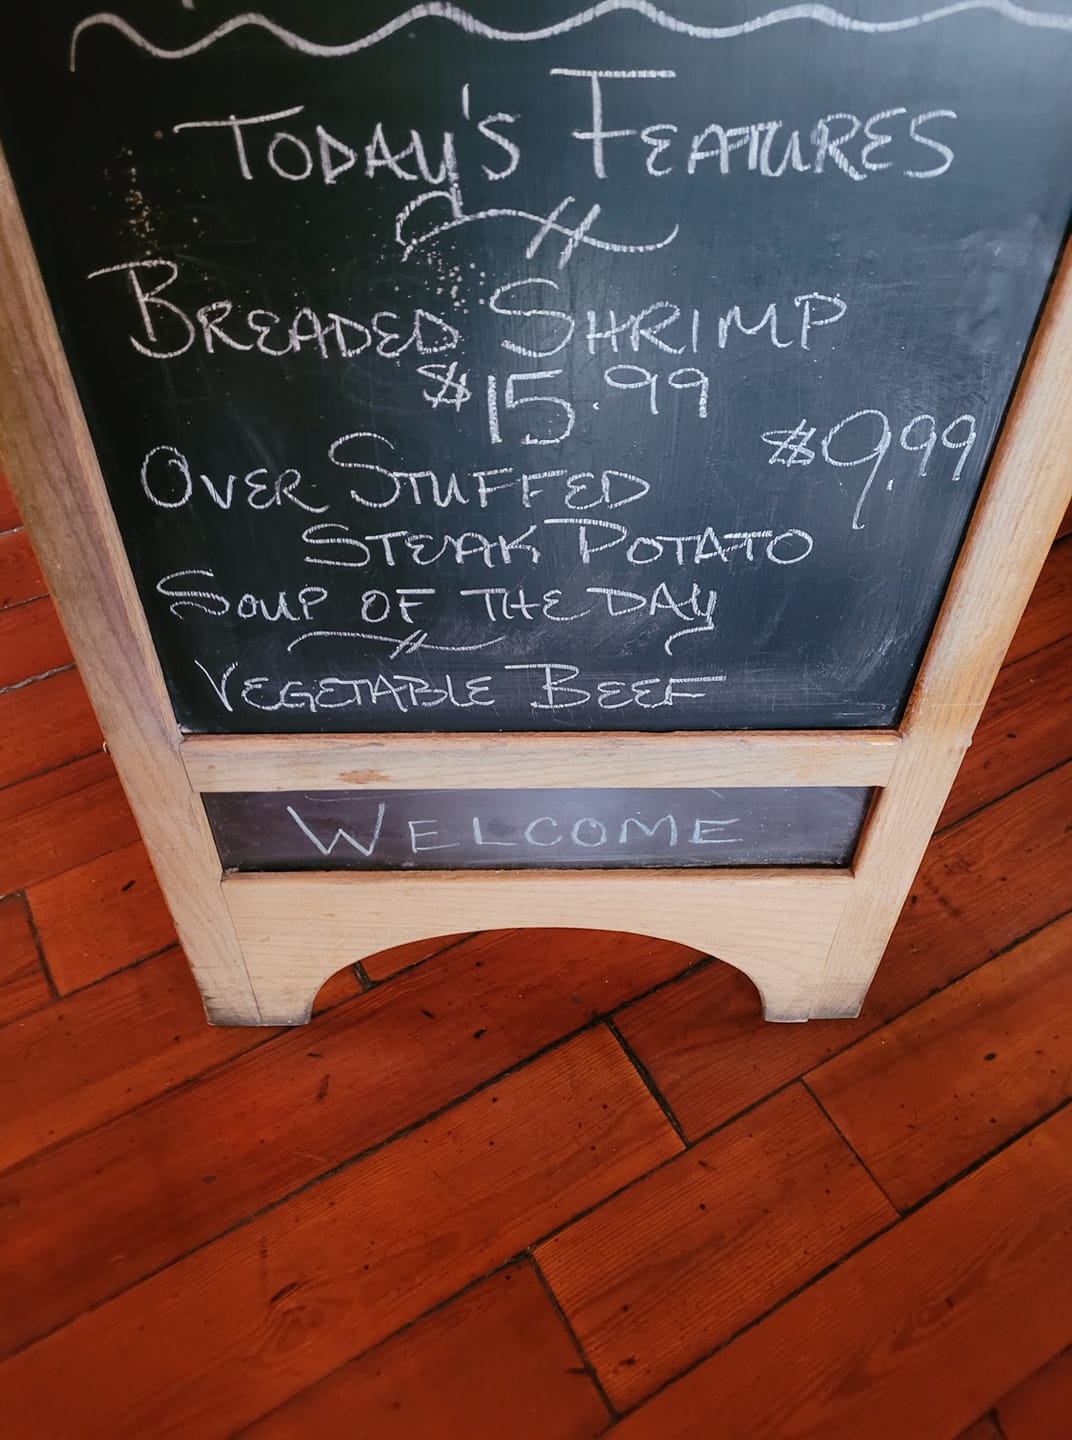 TODAY'S FEATURES
BREADED SHRIMP
$15.99
OVER STUFFED $9.99
STEAK POTATO
SOUP OF THE DAY
VEGETABLE BEEF
WELCOME